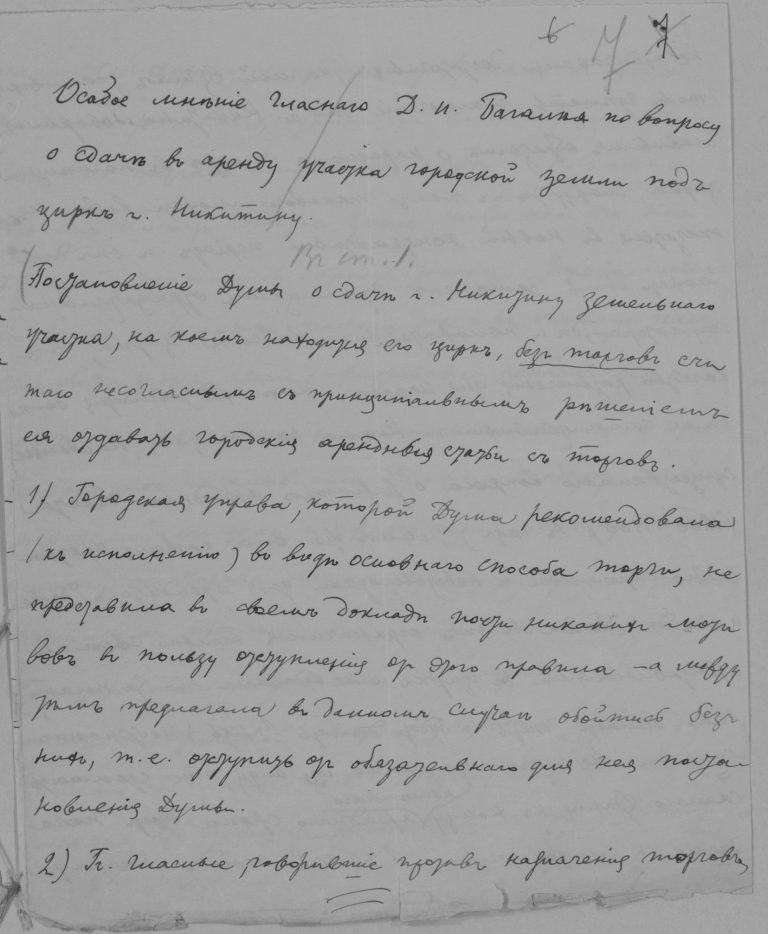 6 7 7
Особое мнѣніе гласнаго Д. И. Багалѣя по вопросу
о сдачѣ въ аренду участка городской земли подъ
циркъ г. Никитину.
Вх ст. 1.
(Постановленіе Думы о сдачѣ г. Никитину земельнаго
участка, на коемъ находится его циркъ, безъ торговъ счи
таю несогласнымъ съ принципіальнымъ рѣшеніемъ
ея отдавать городскія арендныя статьи съ торговъ.
1) Городская управа, которой Дума рекомендовала
(къ исполненію) въ видѣ основнаго способа торги, не
представила въ своемъ докладѣ почти никакихъ моти
вовъ въ пользу отступленія от этого правила – а между
тѣмъ предлагала въ данномъ случаѣ обойтись безъ
нихъ, т. е. отступить от обязательнаго для нея поста-
новленія Думы.
2) Гг. гласные, говорившіе противъ назначенія торговъ,